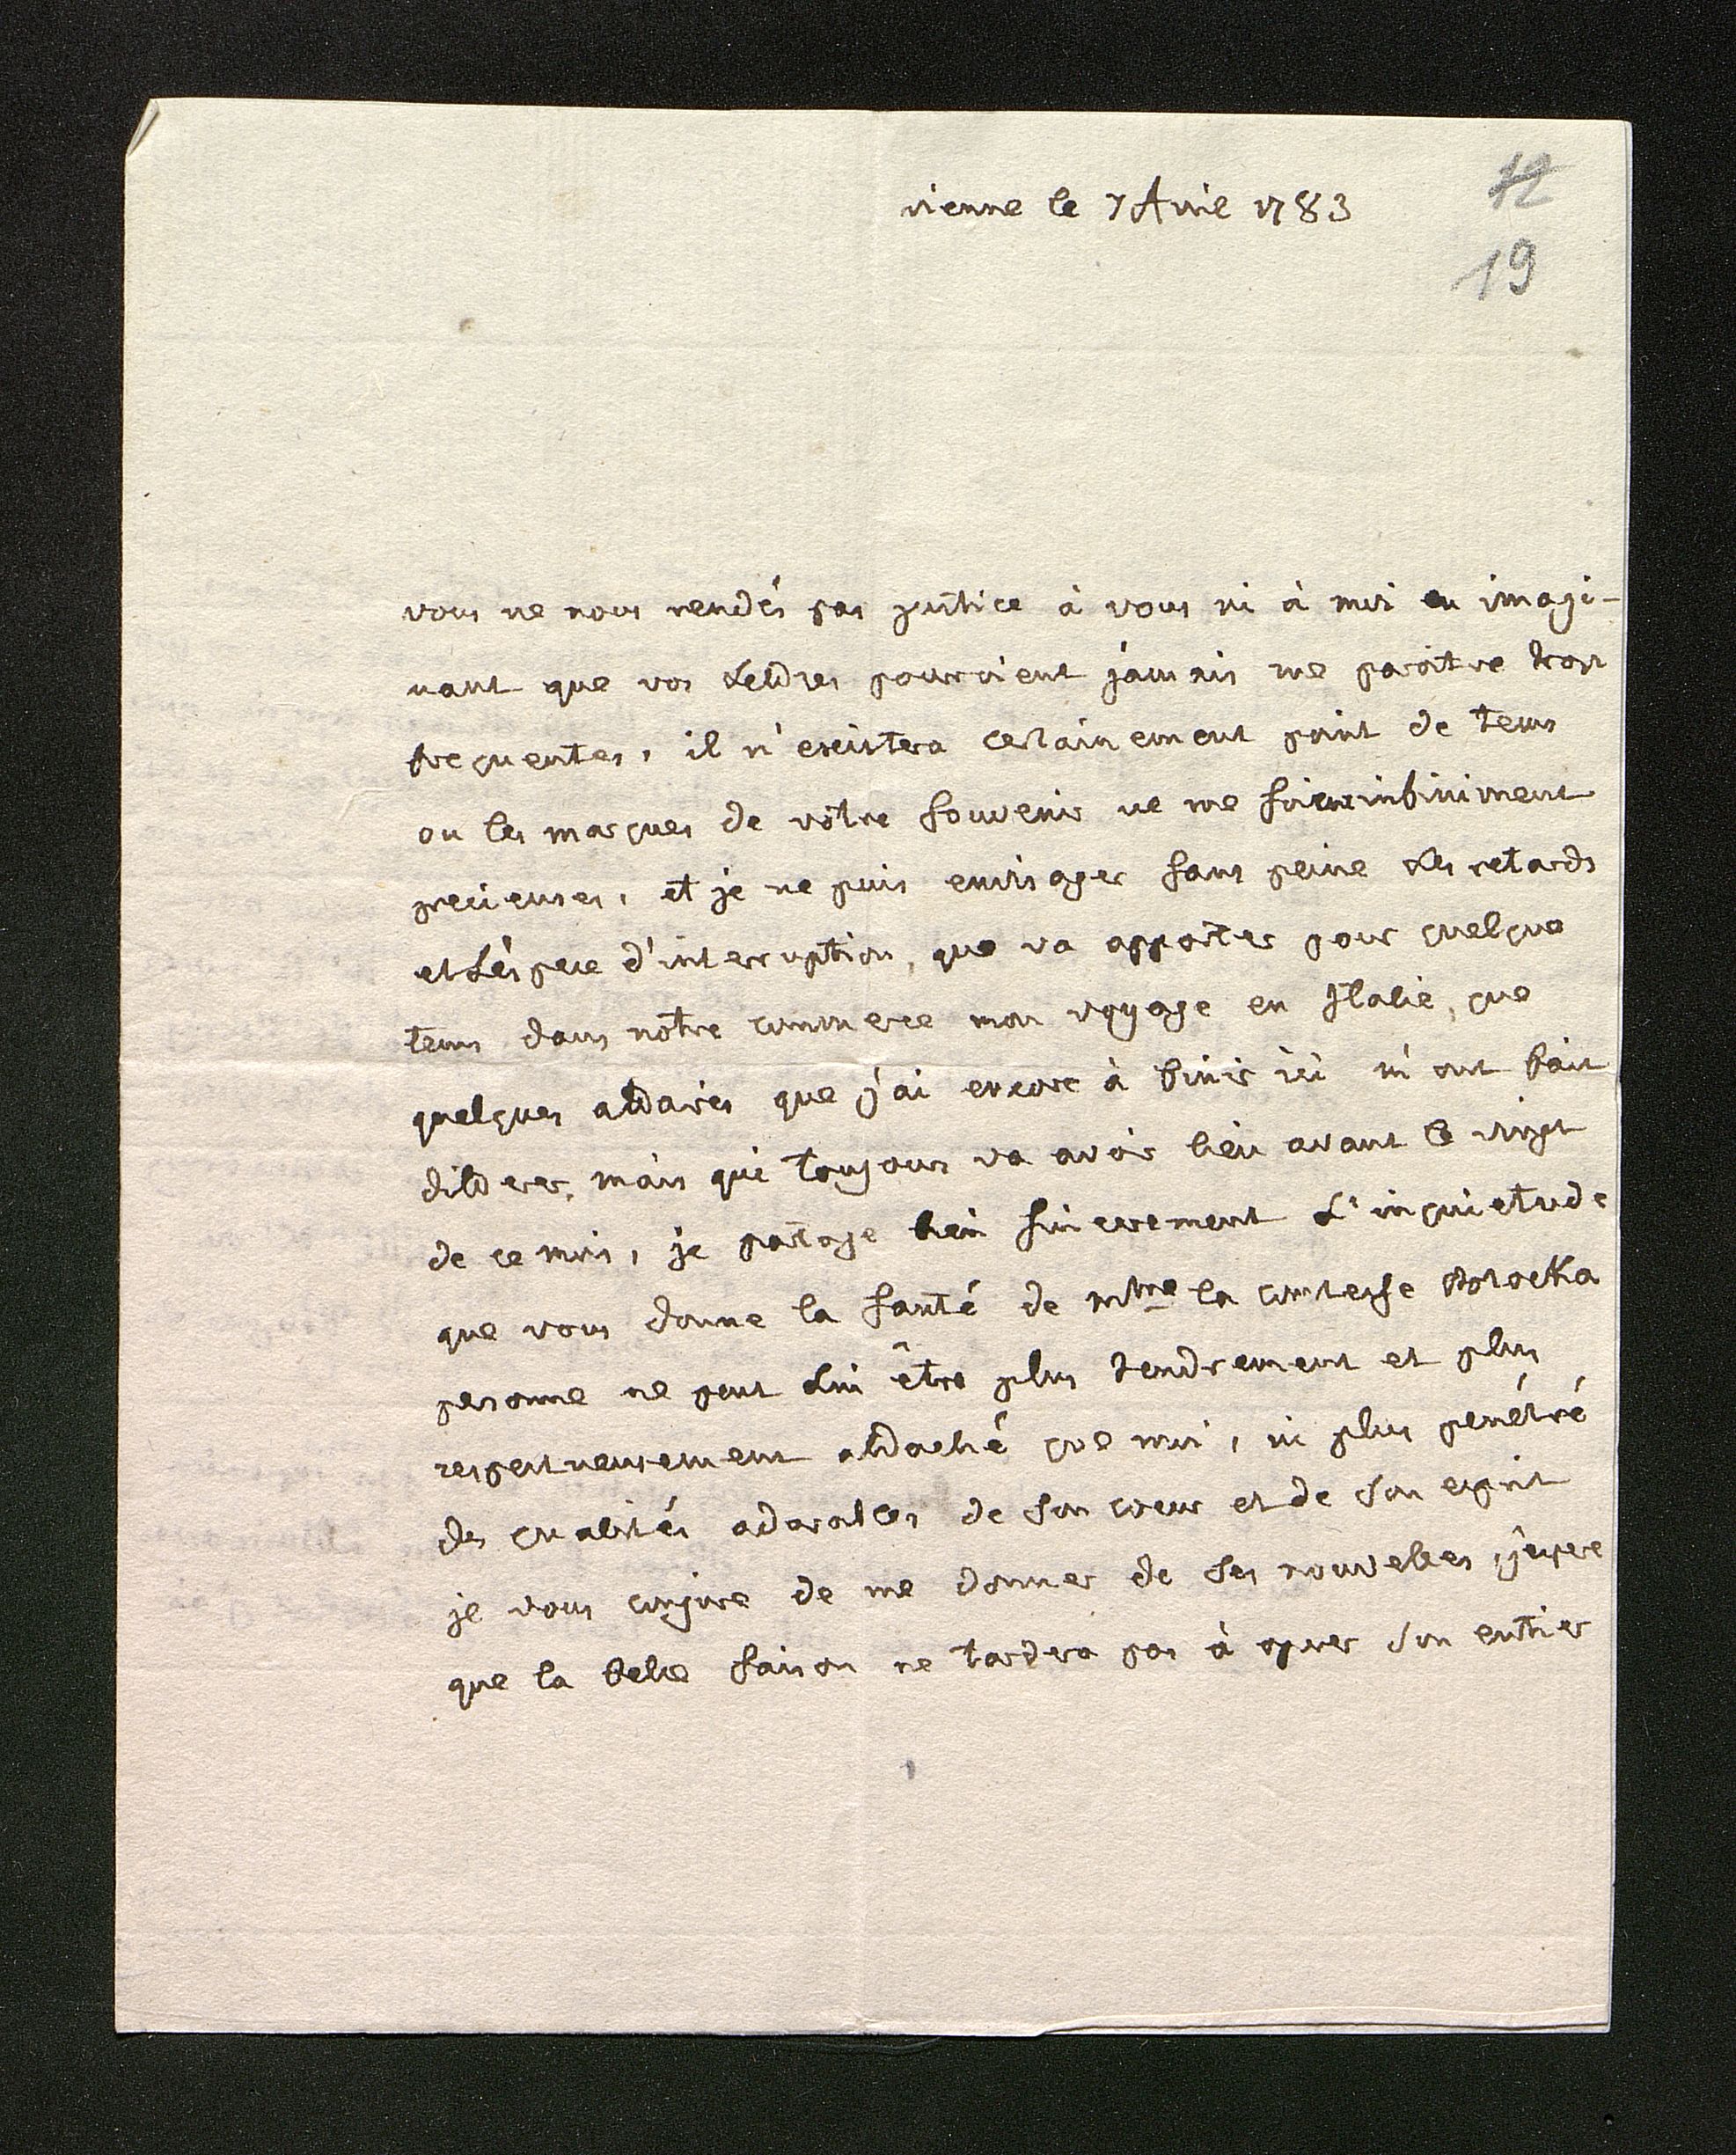 vienne le 7 Avril 1783
12
19
vous ne nous rendés pas justice à vous ni à moi en imagi-
nant que vos Lettres pourroient jamais me paroître trop
frequentes, il n'existera certainement point de tems
ou les marques de vôtre souvenir ne me soient infiniment
precieuses, et je ne puis envisager sans peine les retards
et L'éspece d'interruption, que va apporter pour quelque
tems dans nôtre commerce mon voyage en Italie, que
quelques affaires que j'ai encore à finir ici m'ont fait
differer, mais qui toujours va avoir lieu avant le vingt
de ce mois, je partage bien sincerement L'inquietude
que vous donne la santé de Mme la comtesse Potocka
personne ne peut Lui être plus tendrement et plus
respectueusement attaché que moi, ni plus penétré
des qualités adorables de son coeur et de son esprit
je vous conjure de me donner de ses nouvelles, j'espere
que la belle saison ne tardera pas à operer son entier